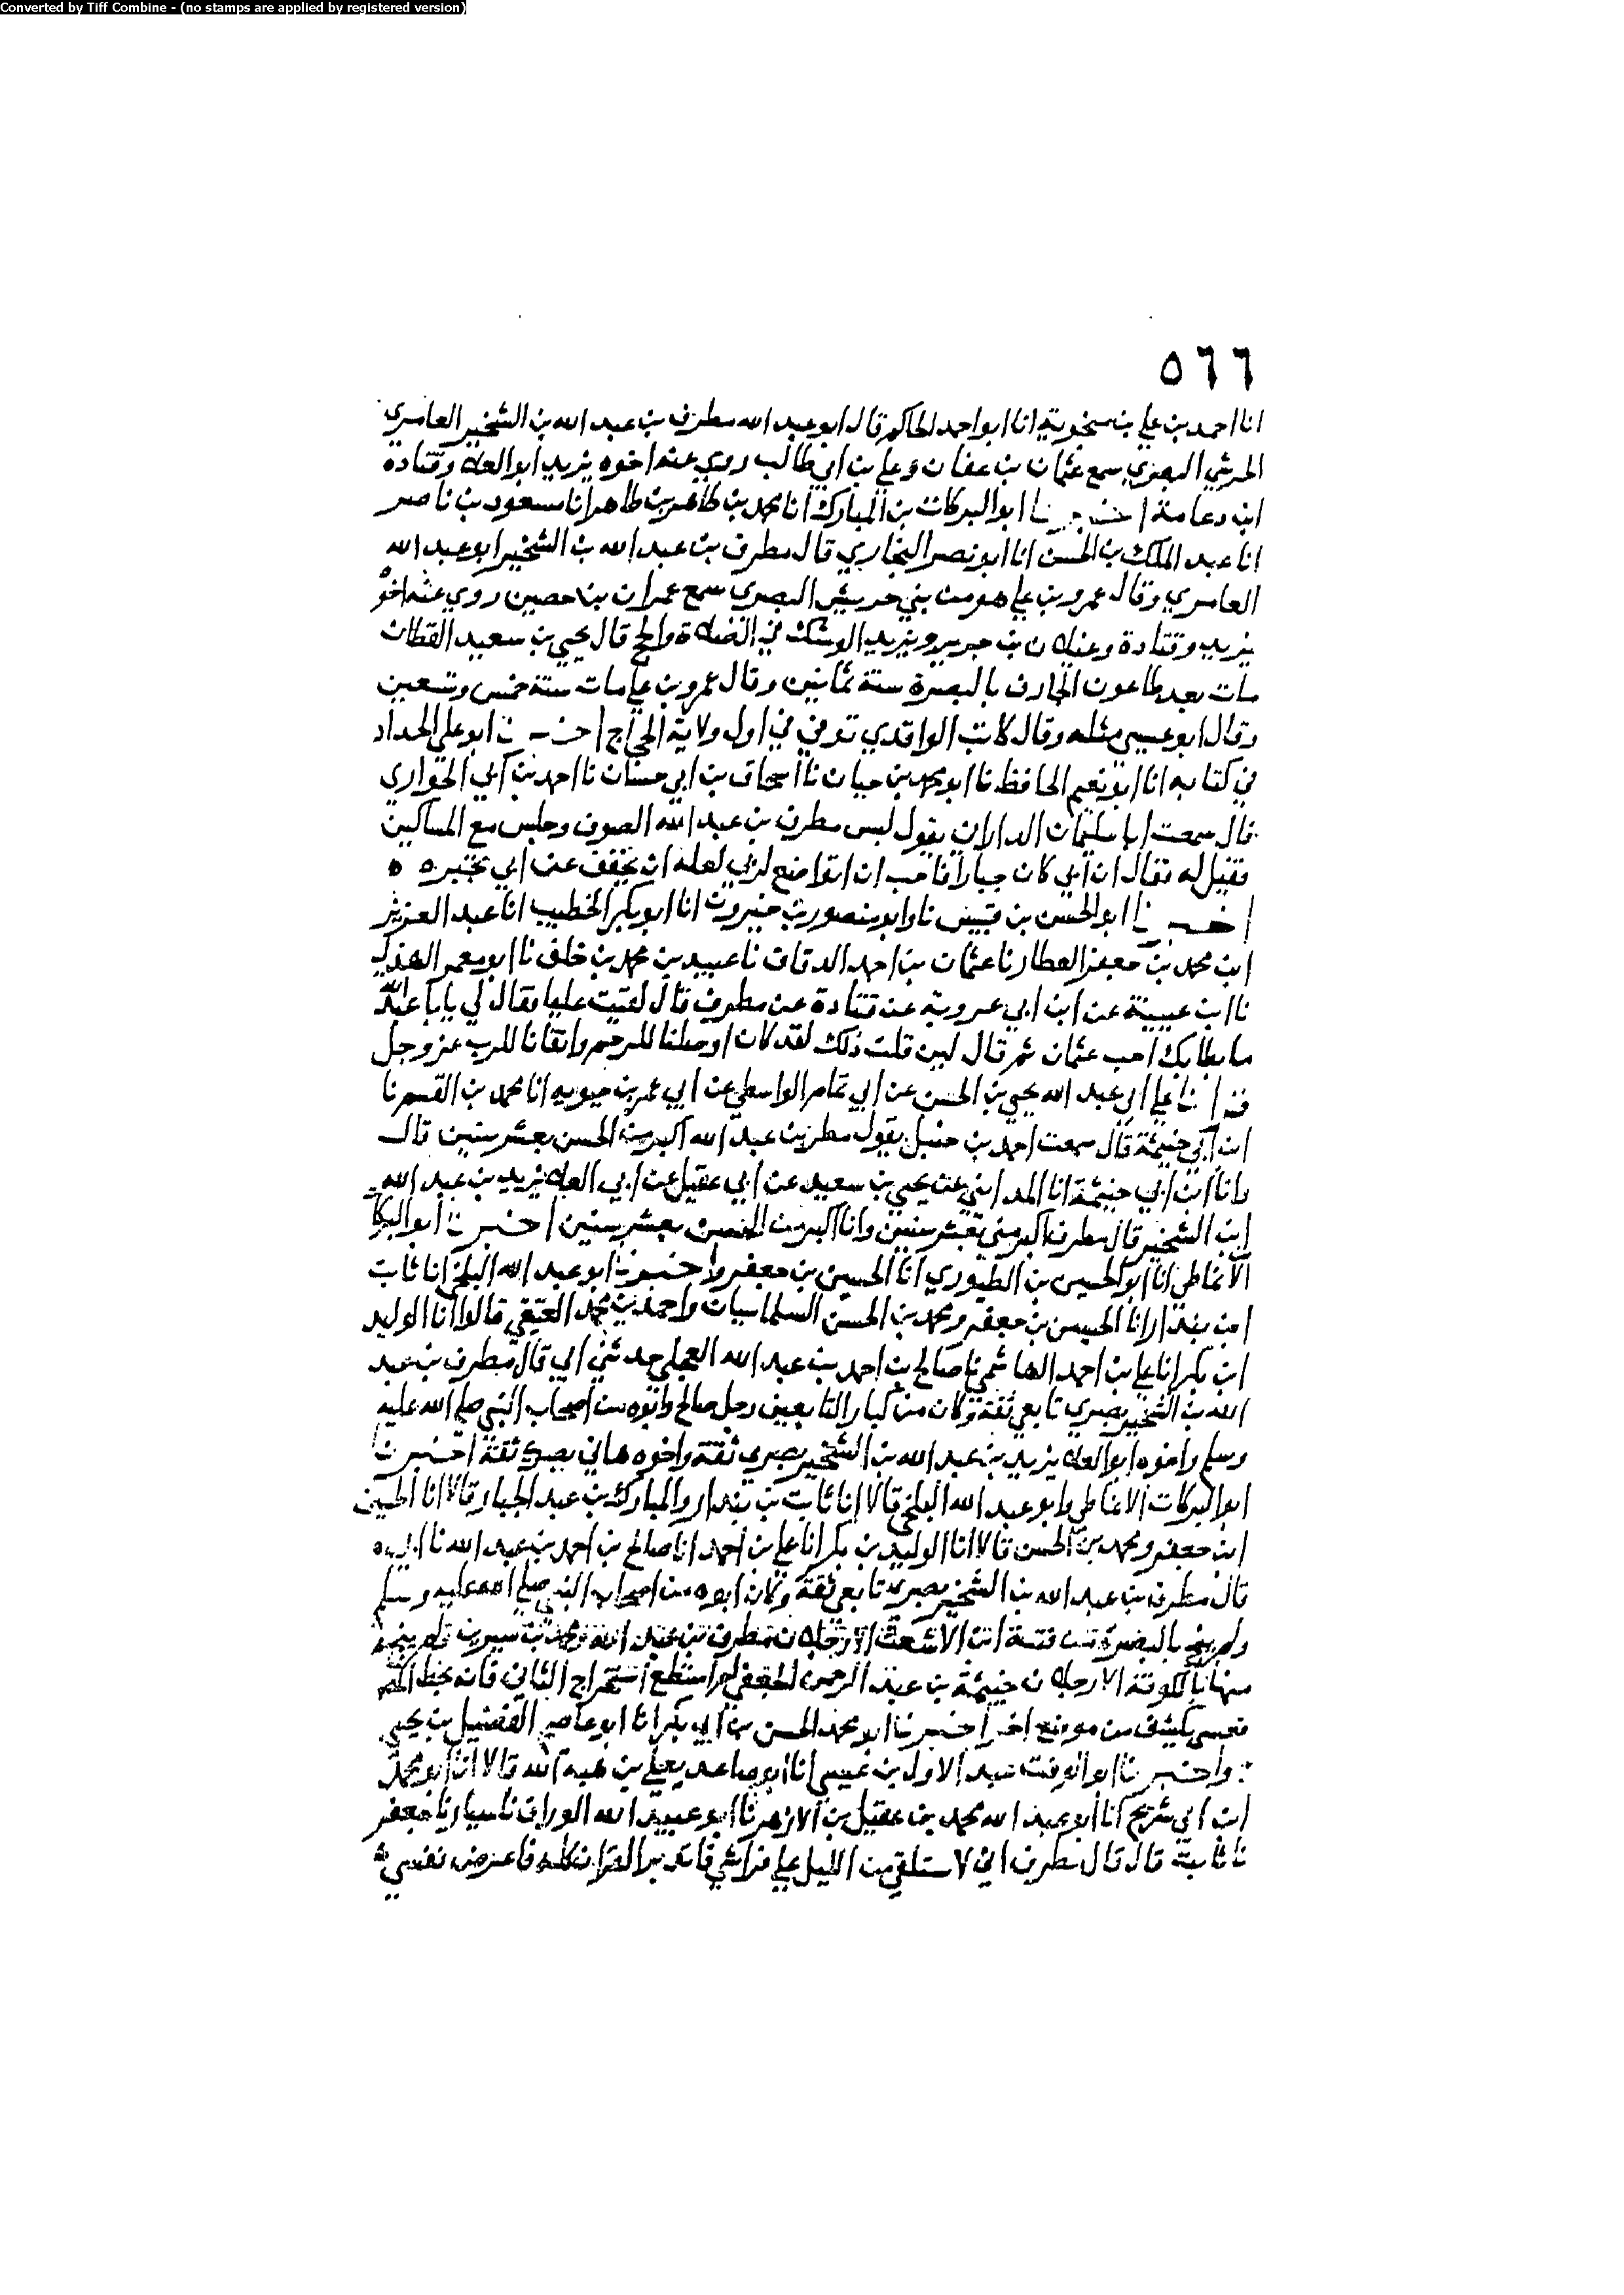 Converted by Tiff Combine - (no stamps are applied by registered version)
٥٦٦
انا احمد بن علي بن منجوية انا ابو احمد الحاكم قال ابو عبد الله مطرف بن عبد الله بن الشخير العامري
الحرشي البصري سمع عثمان بن عفان وعلي بن ابي طالب روي عنه اخوه يزيد ابو العلاء وقتادة
ابن دعامة اخبرنا ابو البركات بن المبارك انا محمد بن طاهر بن طاهر انا مسعود بن ناصر
انا عبد الملك بن الحسن انا ابو نصر البخاري قال مطرف بن عبد الله بن الشخير ابو عبد الله
العامري وقال عمرو بن علي هو من بني حريش البصري سمع عمران بن حصين روي عنه اخوه
يزيد وقتادة وغيلان بن جرير ويزيد الرشك في الصلاة والحج قال يحيي بن سعيد القطان
مات بعد طاعون الجارف بالبصرة سنة ثمانين وقال عمرو بن علي مات سنة خمس وتسعين
وقال ابو عيسي مثله وقال كاتب الواقدي توفي في اول ولاية الحجاج اخبرنا ابو علي الحداد
في كتابه انا ابو نعيم الحافظ نا ابو محمد بن حيان نا اسحاق بن ابي حسان نا احمد بن ابي الحواري
قال سمعت ابا سليمان الداراني يقول لبس مطرف بن عبد الله الصوف وجلس مع المساكين
فقيل له فقال ان ابي كان جبارا فاحب ان اتواضع لربي لعله ان يخفف عن ابي تجبره ٥
اخبرنا ابو الحسن بن قبيس نا وابو منصور بن خيرون انا ابو بكر الخطيب انا عبد العزيز
ابن محمد بن جعفر العطار نا عثمان بن احمد الدقاق نا عبيد بن محمد بن خلف نا ابو معمر الهذلي
نا ابن عيينة عن ابن ابي عروبة عن قتادة عن مطرف قال لقيت عليا فقال لي يابا عبد الله
ما بطا بك احب عثمان ثم قال لين قلت ذلك لقد كان اوصلنا للرحم واتقانا للرب عز وجل
علي ابي عبد الله يحيي بن الحسن عن ابي تمام الواسطي عن ابي عمر بن حيويه انا محمد بن القسم نا
ابن ابي خيثمة قال سمعت احمد بن حنبل يقول مطرف بن عبد الله اكبر من الحسن بعشر سنين قال
وانا ابن ابي خيثمة انا المدايني عن يحيي بن سعيد عن ابي عقيل عن ابي العلاء يزيد بن عبد الله
ابن الشخير قال مطرف اكبر مني بعشر سنين وانا اكبر من الحسن بعشر سنين اخبرنا ابو البركات
الانماطي انا ابو الحسين بن الطيوري انا الحسين بن جعفر واخبرنا ابو عبد الله البلخي انا ثابت
ابن بندار انا الحسين بن جعفر ومحمد بن الحسن السلماسيان واحمد بن محمد العتيقي قالوا انا الوليد
ابن بكر انا علي بن احمد الهاشمي نا صالح بن احمد بن عبد الله العجلي حدثني ابي قال مطرف بن عبد
الله بن الشخير بصري تابعي ثقة وكان من كبار التابعين رجل صالح وابوه من اصحاب النبي صلي الله عليه
وسلم واخوه ابو العلاء يزيد بن عبد الله بن الشخير بصري ثقة واخوه هاني بصري ثقة اخبرنا
ابو البركات الانماطي وابو عبد الله البلخي قالا انا ثابت بن بندار والمبارك بن عبد الجبار قالا انا الحسين
ابن جعفر ومحمد بن الحسن قالا انا الوليد بن بكر انا علي بن احمد انا صالح بن احمد بن عبد الله نا ابي ٥
قال مطرف بن عبد الله بن الشخير بصري تابعي ثقة وكان ابوه من اصحاب النبي صلي الله عليه وسلم
ولم ينج بالبصرة من فتنة ابن الاشعث الا رجلان مطرف بن عبد الله ومحمد بن سيرين ولم ينج
منها بالكوفة الا رجلان خيثمة بن عبد الرحمن الجعفي لم استطع استخراج الثاني فانه بخط
فعسي يكشف من موضع اخر اخبرنا ابو محمد الحسن بن ابي بكر انا ابو عاصم الفضيل بن يحيي
واخبرنا ابو الوقت عبد الاول بن عيسي انا ابو صاعد يعلي بن هبة الله قالا انا ابو محمد
ابن ابي شريح انا ابو عبد الله محمد بن عقيل بن الازهر نا ابو عبيد الله الوراق نا سيار نا جعفر
نا ثابت قال قال مطرف اني لاستلقي من الليل علي فراشي فاتدبر القران كله فاعرض نفسي